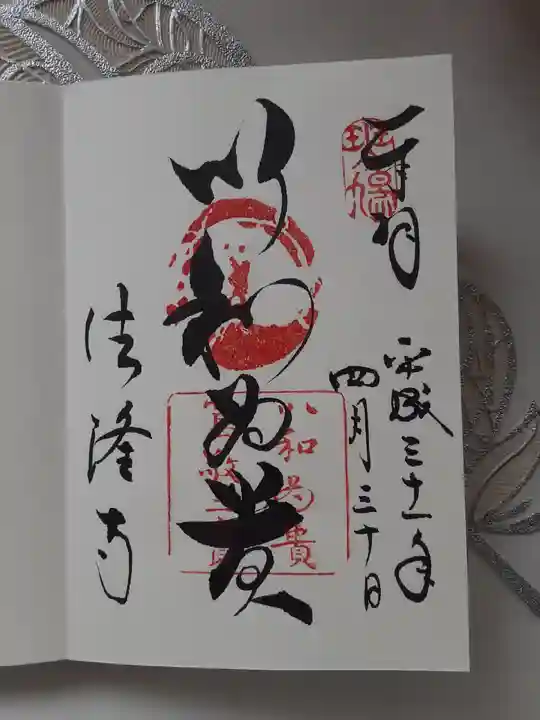 奉拝
平成三十一年
四月三十日
以和為貴
以和為貴
篤敬三寳
法隆寺